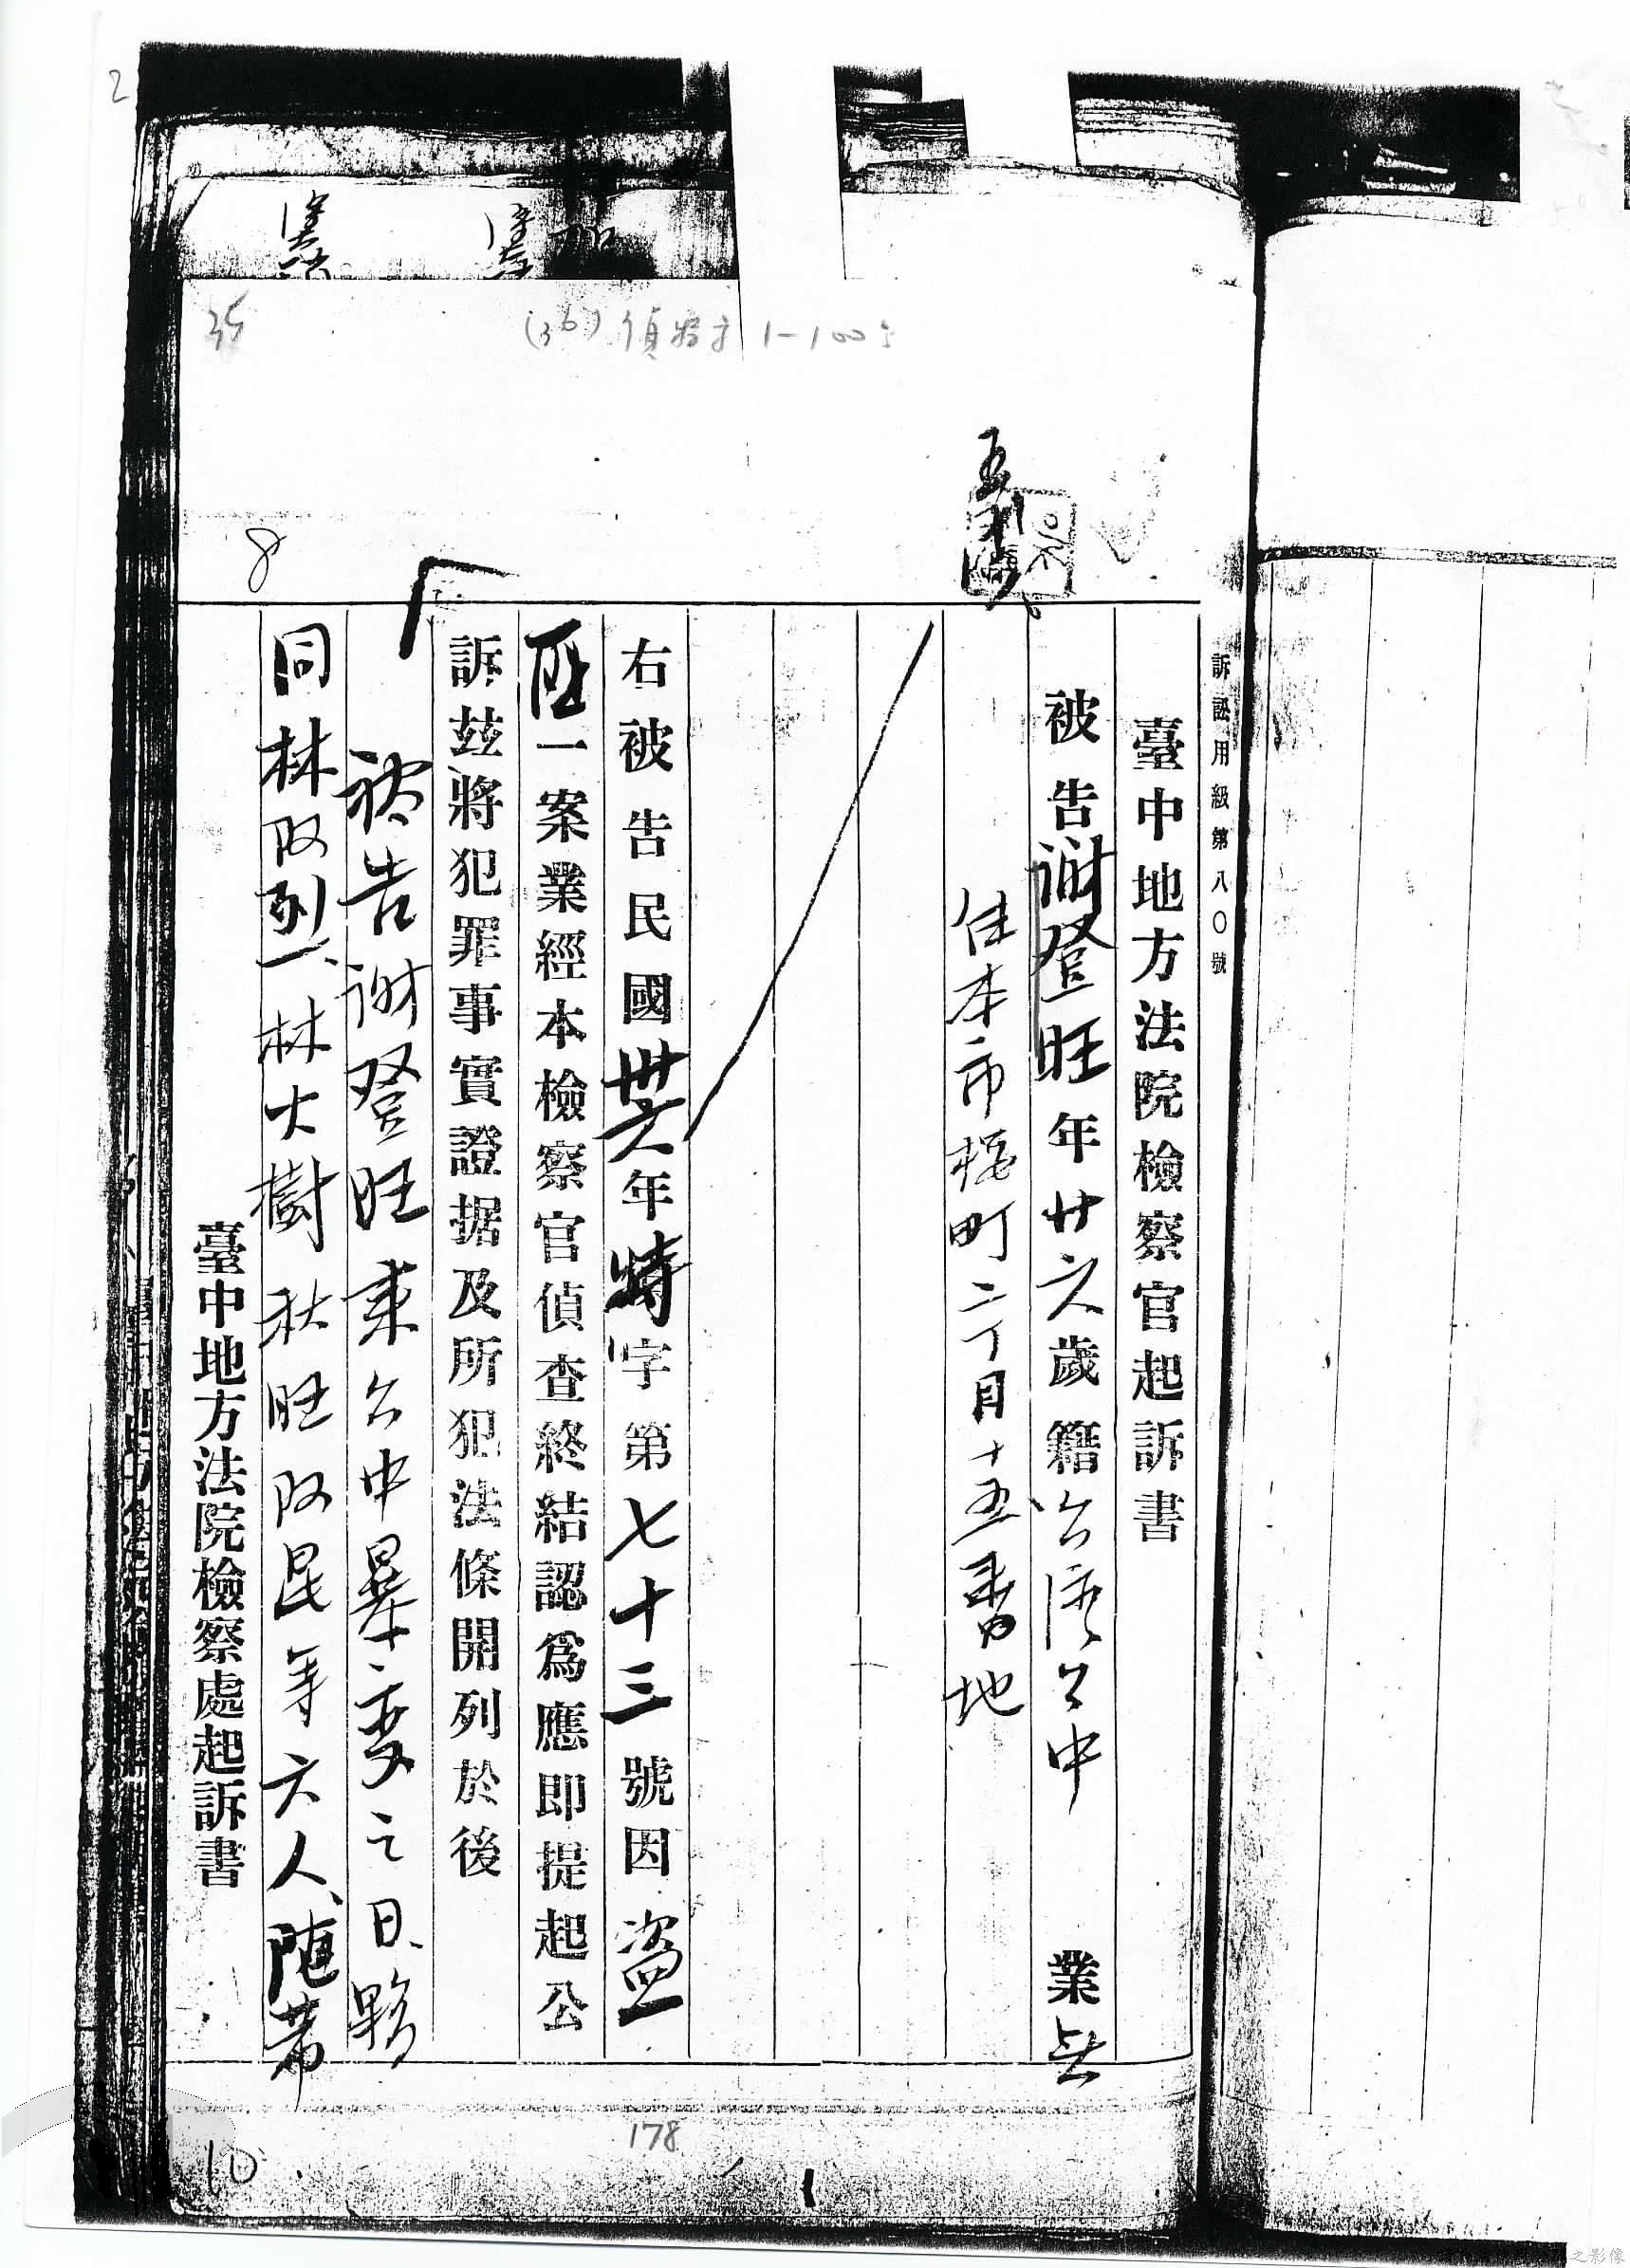 訴訟用級第八〇號
臺中地方法院檢察官起訴書
被告謝登旺年廿六歲籍台灣台中 業無
住本市櫻町二丁目十五番地
右被告民國卅六年特字第七十三號因盜
匪一案業經本檢察官偵查終結認爲應即提起公
訴茲將犯罪事實證据及所犯法條開列於後
被告謝登旺乘台中暴變之日、夥
同林阿列、林火樹 秋旺 阿昆等六人、随帶
臺中地方法院檢察處起訴書
(36)偵特字 1-100
8
178
10
2